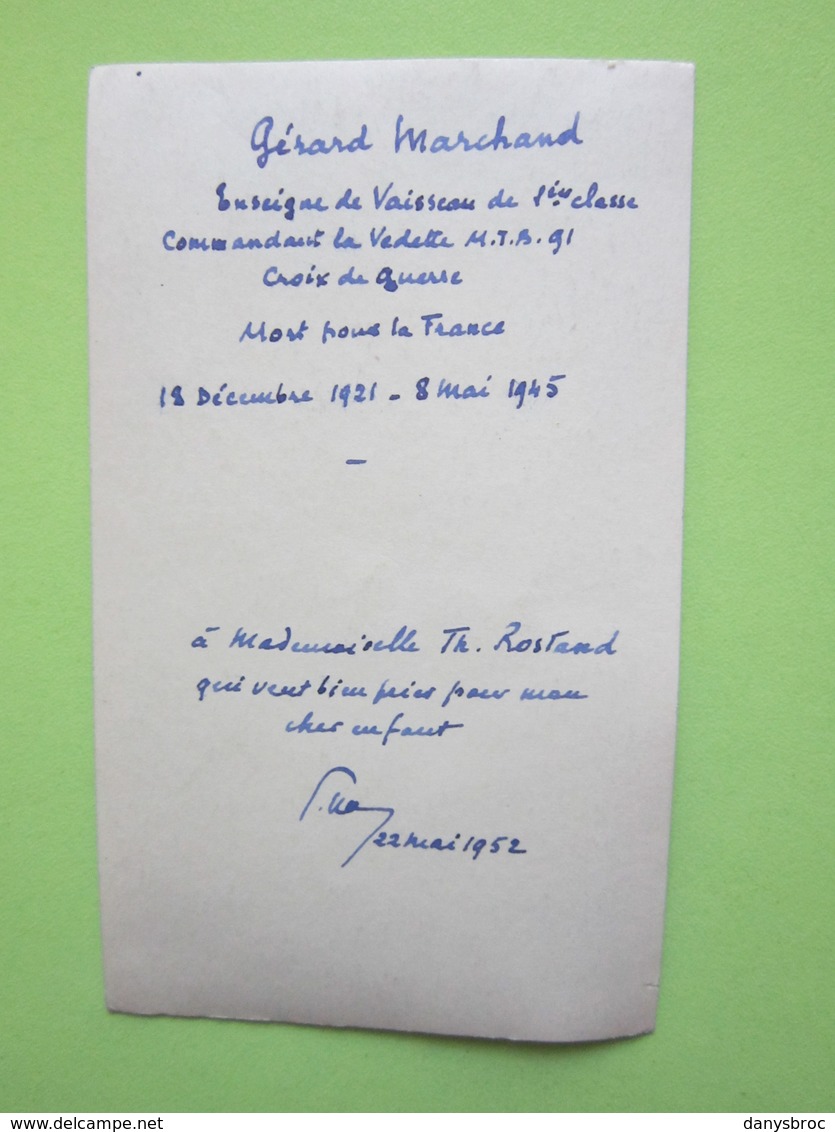 Gérard Marchand
Enseigne de Vaisseau de 1ère classe
Commandant la Vedette M.T.B. 91
Croix de Guerre
Mort pour la France
18 Décembre 1921 - 8 Mai 1945
à Mademoiselle Th. Rostand
qui veut bien prier pour mon
cher enfant
22 mai 1952
delcampe.net
danysbroc